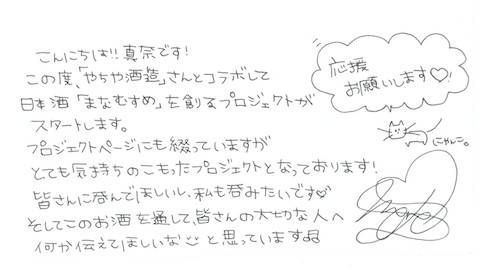 こんにちは!! 真奈です!
この度、「やちや酒造」さんとコラボして
日本酒「まなむすめ」を創るプロジェクトが
スタートします。
プロジェクトページにも綴っていますが
とても気持ちのこもったプロジェクトとなっております!
皆さんに呑んでほしいし、私も呑みたいです♡
そしてこのお酒を通して、皆さんの大切な人へ
何か伝えてほしいな と思っています
応援
お願いします♡!
にゃんこ。